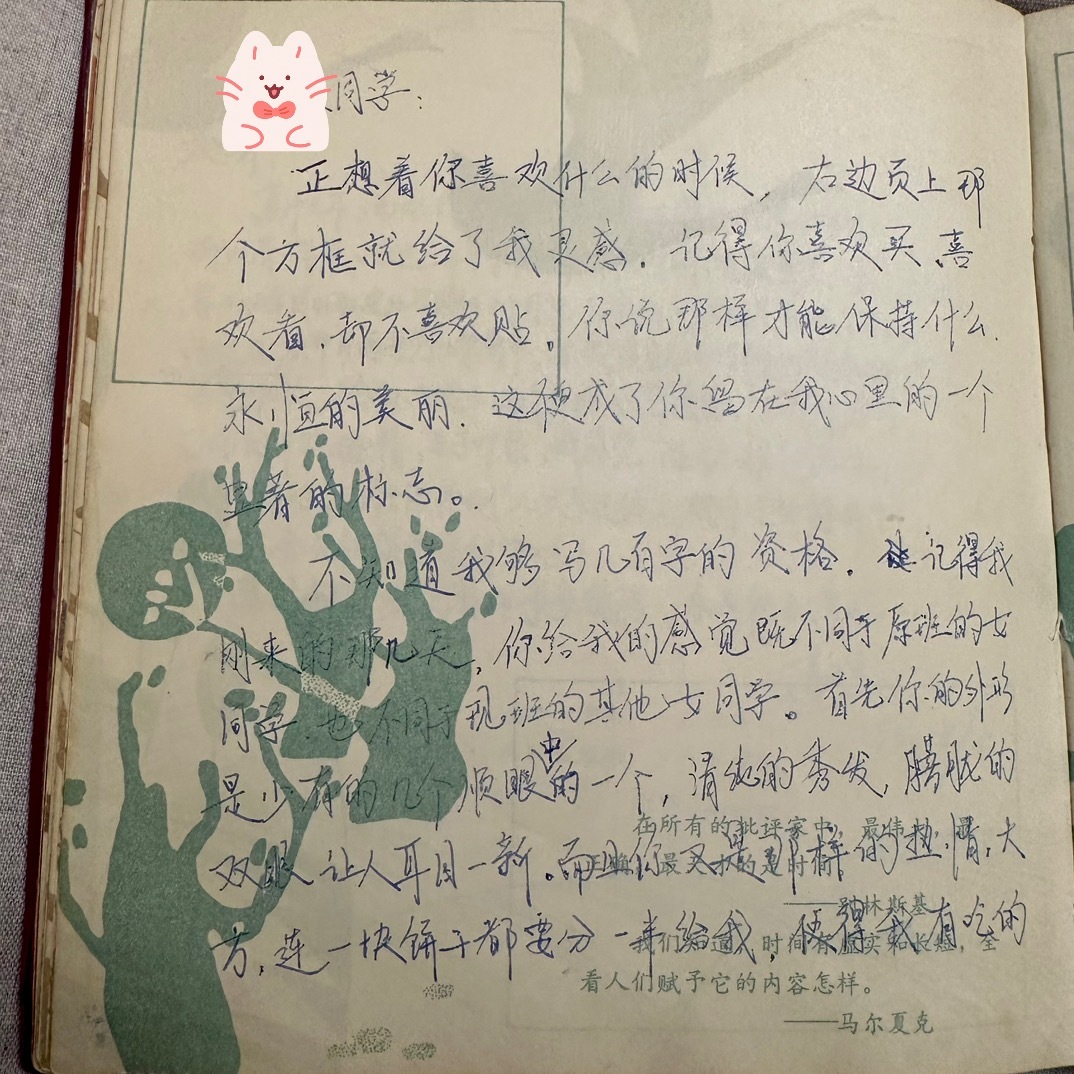 同学：
正想着你喜欢什么的时候，右边页上那
个方框就给了我灵感。记得你喜欢买、喜
欢看、却不喜欢贴。你说那样才能保持什么
永恒的美丽。这便成了你留在我心里的一个
显著的标志。
不知道我够写几百字的资格。记得我
刚来的那几天，你给我的感觉既不同于原班的女
同学，也不同于现班的其他女同学。首先你的外形
是少有的几个顺眼中的一个，清纯的秀发，朦胧的
双眼让人耳目一新。而且你又是那样的热情，大
方，连一块饼干都要分一半给我，使得我有吃的
在所有的批评家中，最伟大、最
正确、最天才的是时间。
——别林斯基
我们知道，时间有虚实和长短，全
看人们赋予它的内容怎样。
——马尔夏克